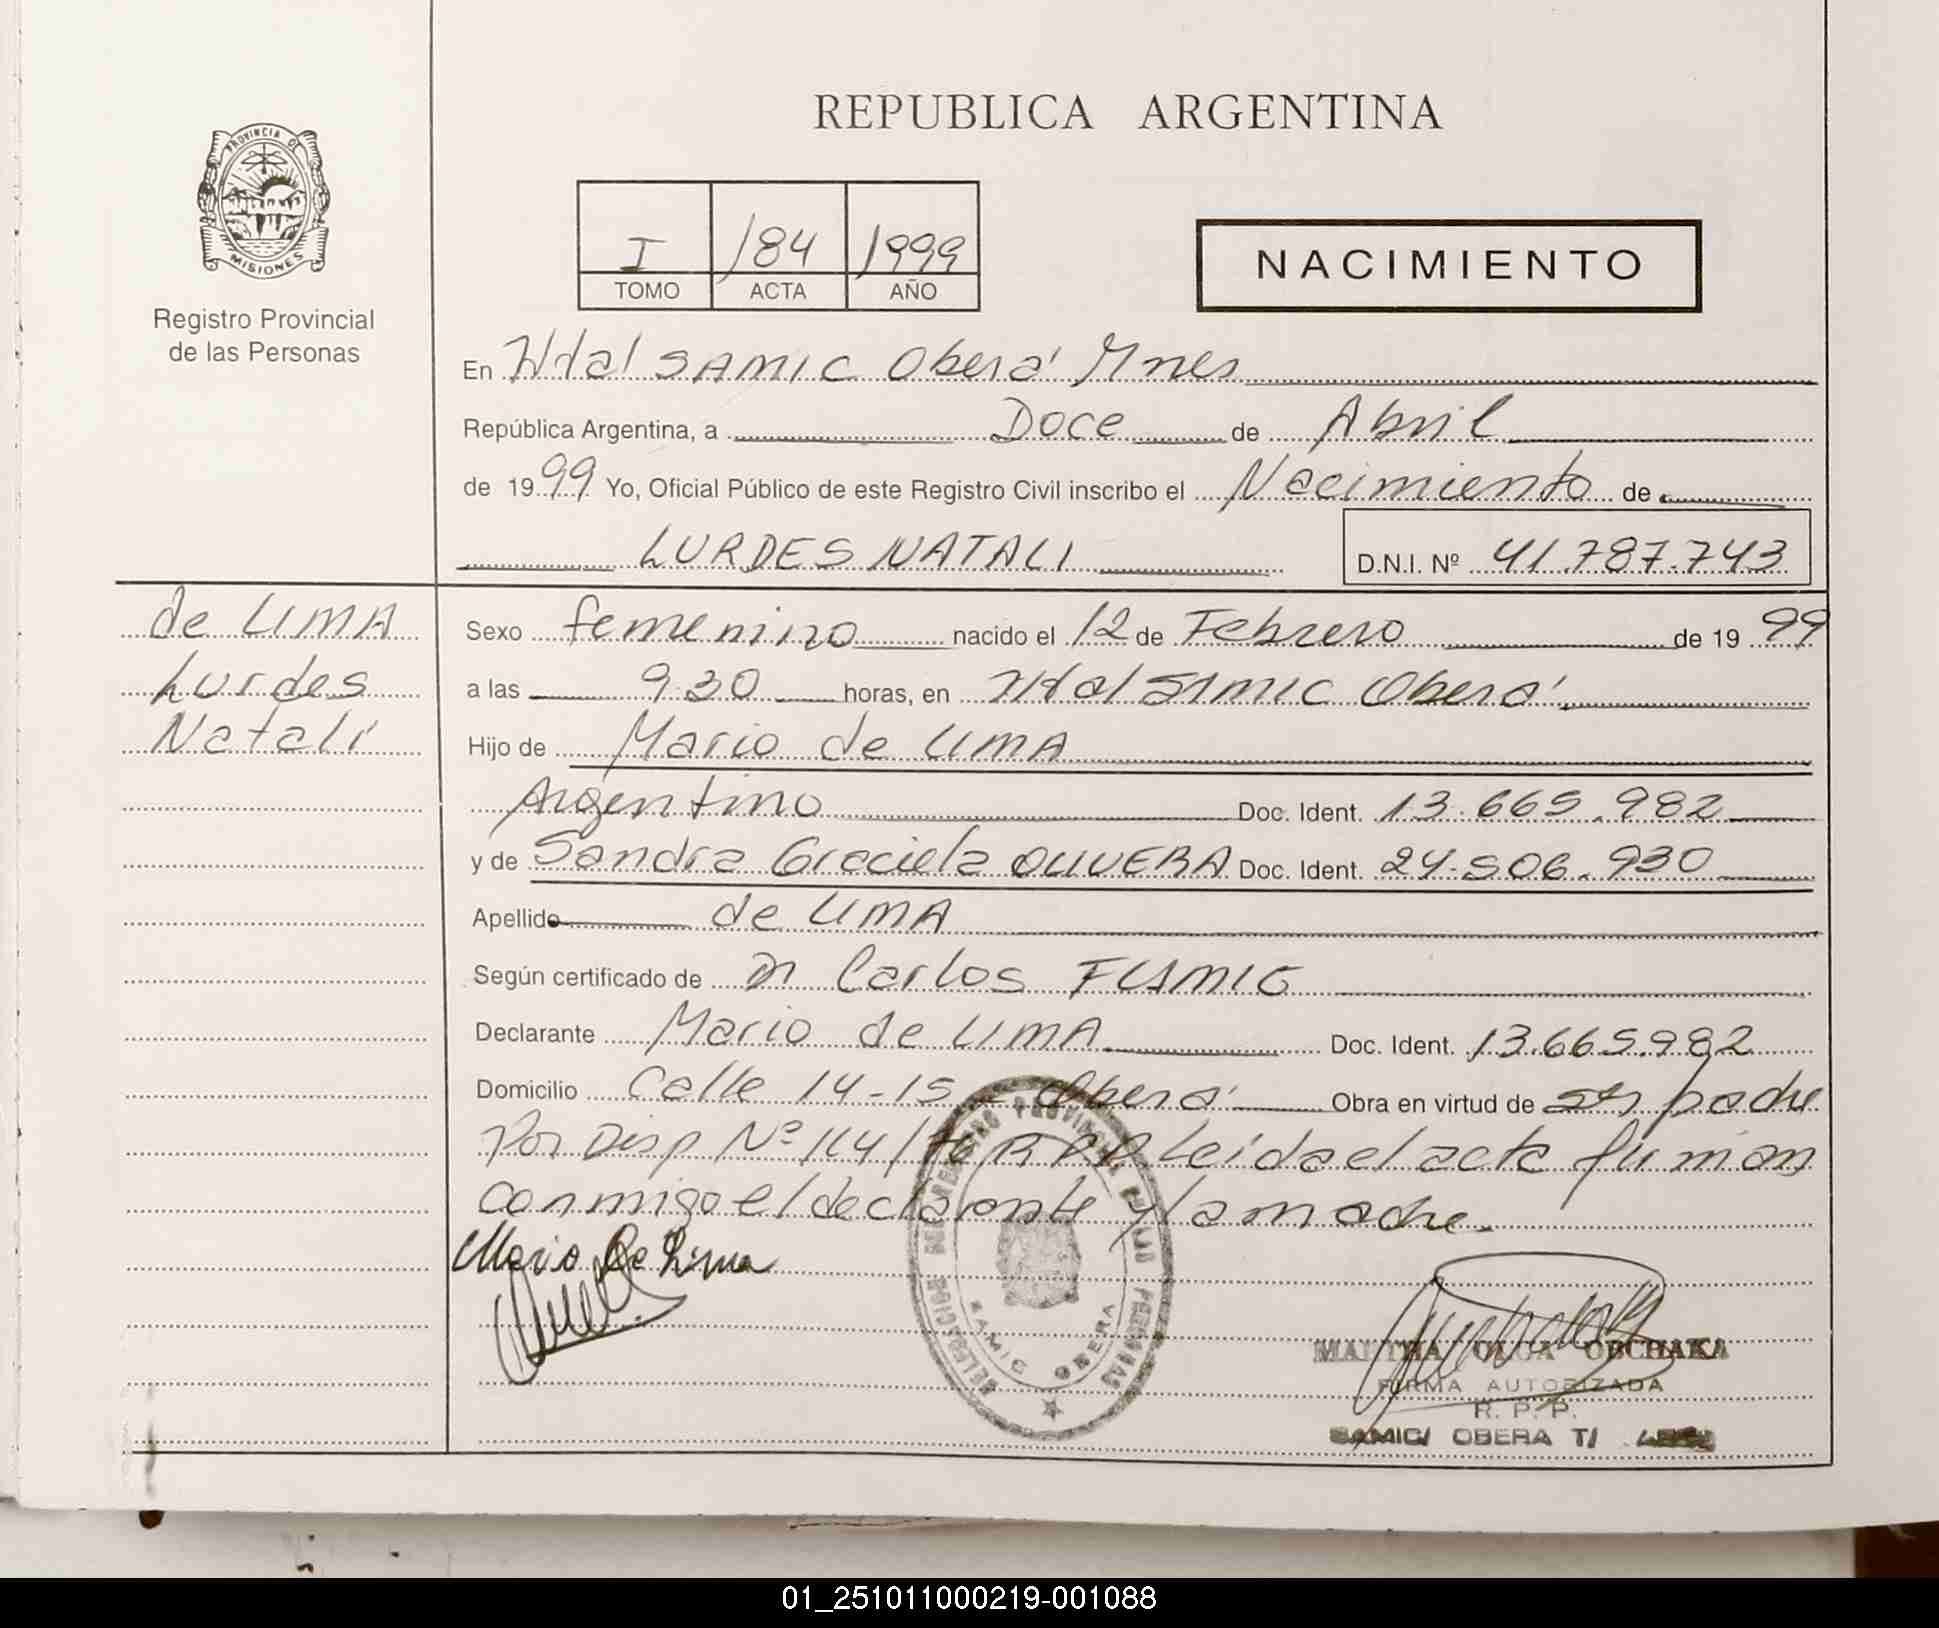 REPUBLICA ARGENTINA
PROVINCIA DE
MISIONES
Registro Provincial
de las Personas
I /84 1999
TOMO ACTA AÑO
NACIMIENTO
En Htal SAMIC Oberá Mnes
República Argentina, a Doce de Abril
de 1999 Yo, Oficial Público de este Registro Civil inscribo el Nacimiento de
LURDES NATALI D.N.I. Nº 41.787.743
de LIMA
Lurdes
Natali
Sexo femenino nacido el 12 de Febrero de 1999
a las 9.30 horas, en Htal SAMIC Oberá
Hijo de Mario de LIMA
Argentino Doc. Ident. 13.665.982
y de Sandra Graciela OLIVERA Doc. Ident. 24.506.930
Apellido de LIMA
Según certificado de Dr Carlos
Declarante Mario de LIMA Doc. Ident. 13.665.982
Domicilio Calle 14-15 - Oberá Obra en virtud de ser padre
Por Disp Nº 114/76 R.P.P. Leida el acta firman
conmigo el declarante y la madre.
Mario De Lima
DELEGACION DEL REGISTRO PROVINCIAL DE LAS PERSONAS
SAMIC OBERA
MARTHA OLGA OBCHAKA
FIRMA AUTORIZADA
R. P. P.
SAMIC/ OBERA T/
01_251011000219-001088